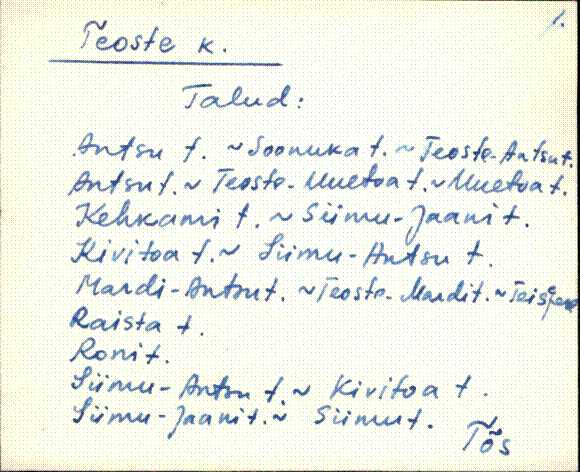 1.
Teoste k.
Talud:
Antsu t. ~ Soonuka t. ~ Teoste-Antsu t.
Antsu t. ~ Teoste-Uuetoa t. ~ Uuetoa t.
Kehkami t. ~ Siimu-Jaani t.
Kivitoa t. ~ Siimu-Antsu t.
Mardi-Antsu t. ~ Teoste-Mardi t. ~
Raista t.
Roni t.
Siimu-Antsu t. ~ Kivitoa t.
Siimu-Jaani t. ~ Siimu t.
Tõs